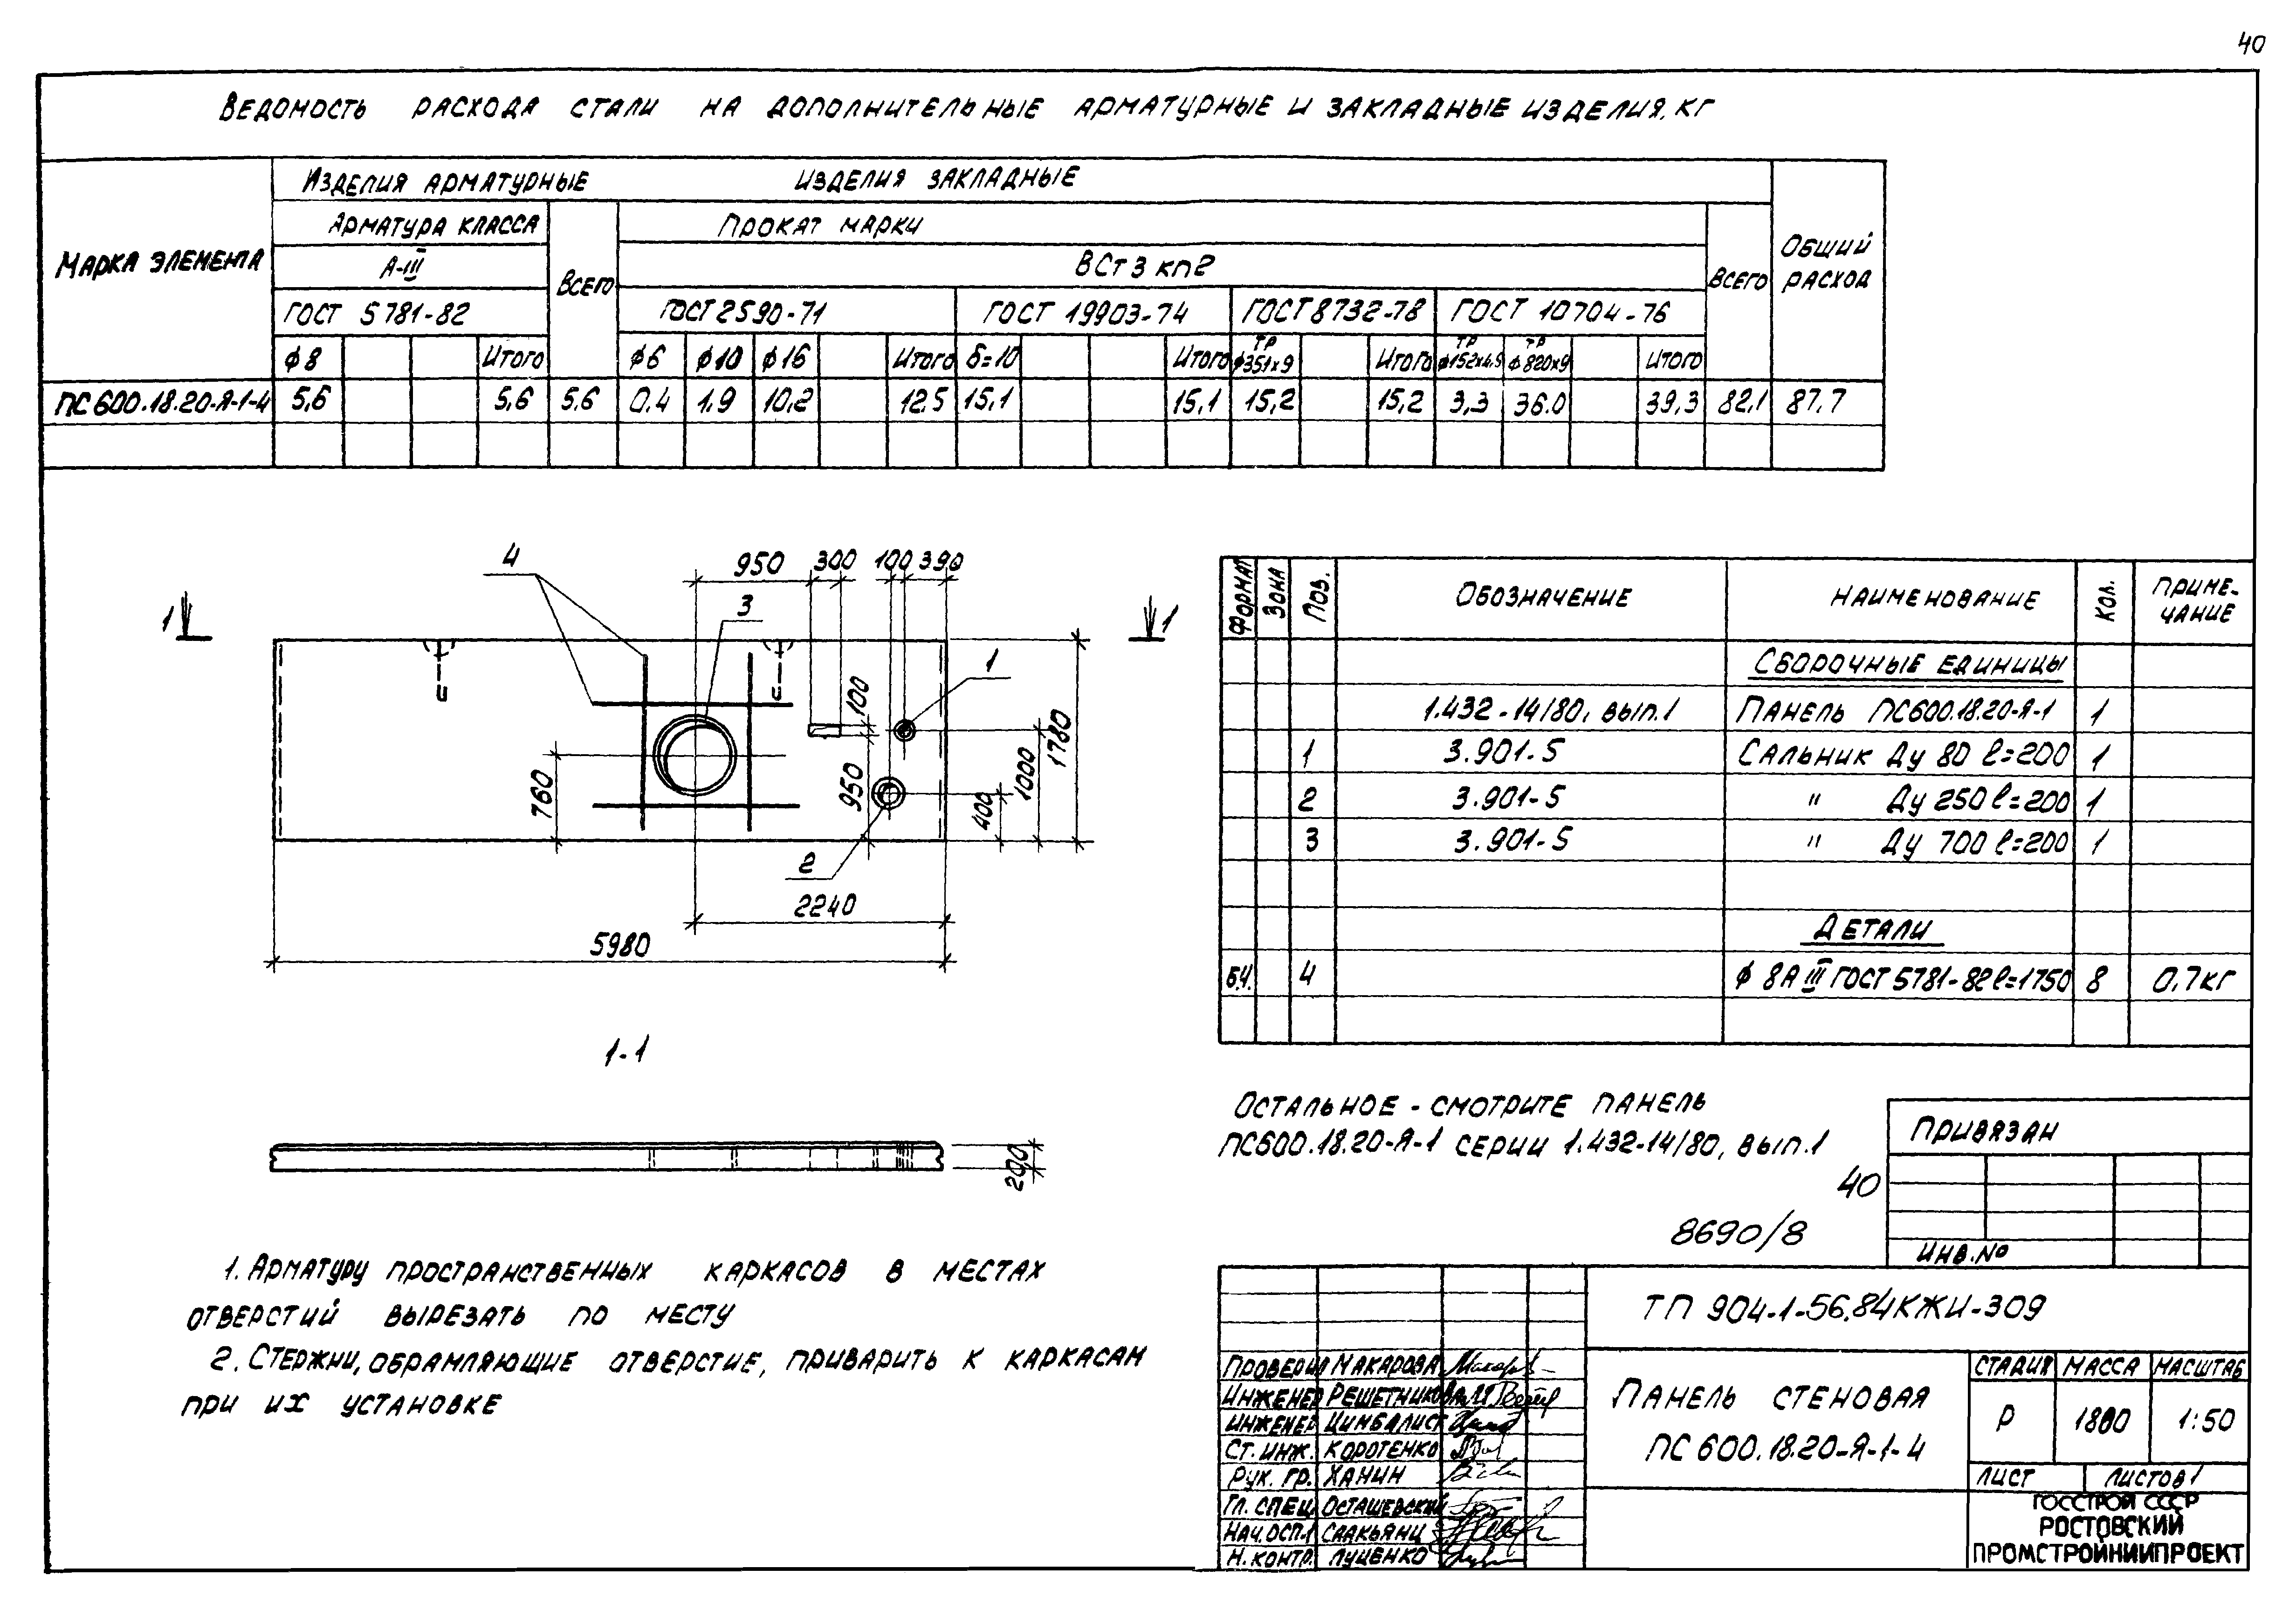 40
Ведомость расхода стали на дополнительные арматурные и закладные изделия, кг
Марка элемента
Изделия арматурные
Изделия закладные
Общий расход
Арматура класса
Всего
Прокат марки
Всего
А-III
ВСт3кп2
ГОСТ 5781-82
ГОСТ 2590-71
ГОСТ 19903-74
ГОСТ 8732-78
ГОСТ 10704-76
ф8 Итого ф6 ф10 ф16 Итого δ=10 Итого тр ф351х9 Итого тр ф152х4,5 тр ф820х9 Итого
ПС600.18.20-Я-1-4 5,6 5,6 5,6 0,4 1,9 10,2 12,5 15,1 15,1 15,2 15,2 3,3 36.0 39,3 82,1 87,7
4
950 300 100 390
3
1 1
1
100
1780
1000
950
760
400
2
2240
5980
1-1
200
1. Арматуру пространственных каркасов в местах
отверстий вырезать по месту
2. Стержни, обрамляющие отверстие, приварить к каркасам
при их установке
Формат Зона Поз. Обозначение Наименование Кол. Приме-
чание
Сборочные единицы
1.432-14/80, вып.1 Панель ПС600.18.20-Я-1 1
1 3.901-5 Сальник Ду 80 ℓ=200 1
2 3.901-5 " Ду 250 ℓ=200 1
3 3.901-5 " Ду 700 ℓ=200 1
Детали
Б.Ч. 4 ф 8АIII ГОСТ 5781-82 ℓ=1750 8 0,7кг
Остальное - смотрите панель
ПС600.18.20-Я-1 серии 1.432-14/80, вып.1
40
8690/8
Привязан
Инв.№
ТП 904-1-56.84 КЖИ-309
Проверил Макарова
Инженер Решетникова
Инженер Цимбалист
Ст. инж. Коротенко
Рук. гр. Ханин
Гл. спец. Осташевский
Нач. осп.1 Саакьянц
Н. контр. Луценко
Панель стеновая
ПС 600.18.20-Я-1-4
Стадия Масса Масштаб
Р 1800 1:50
Лист Листов 1
ГОССТРОЙ СССР
РОСТОВСКИЙ
ПРОМСТРОЙНИИПРОЕКТ